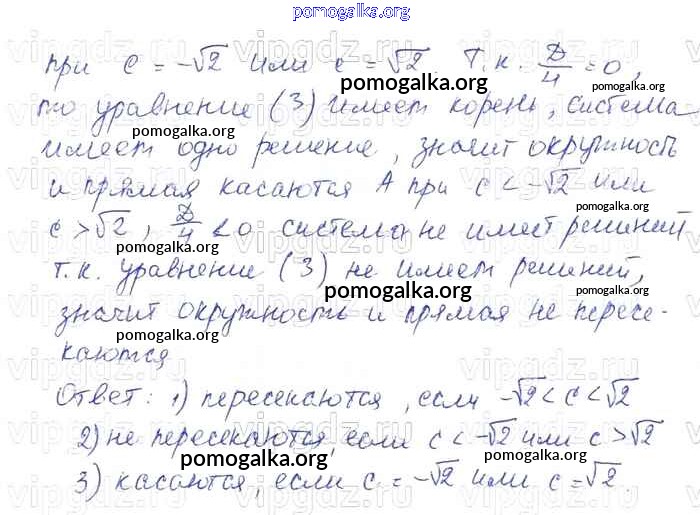 pomogalka.org
при c = -√2 или c = √2 Т.к. D/4 = 0,
pomogalka.org
то уравнение (3) имеет корень, система
pomogalka.org
имеет одно решение, значит окружность
pomogalka.org
и прямая касаются А при c < -√2 или
pomogalka.org
c > √2, D/4 < 0 система не имеет решений
pomogalka.org
т.к. уравнение (3) не имеет решений,
pomogalka.org
значит окружность и прямая не пересе-
pomogalka.org
каются
Ответ: 1) пересекаются, если -√2 < c < √2
pomogalka.org
2) не пересекаются, если c < -√2 или c > √2
pomogalka.org
pomogalka.org
3) касаются, если c = -√2 или c = √2.
pomogalka.org